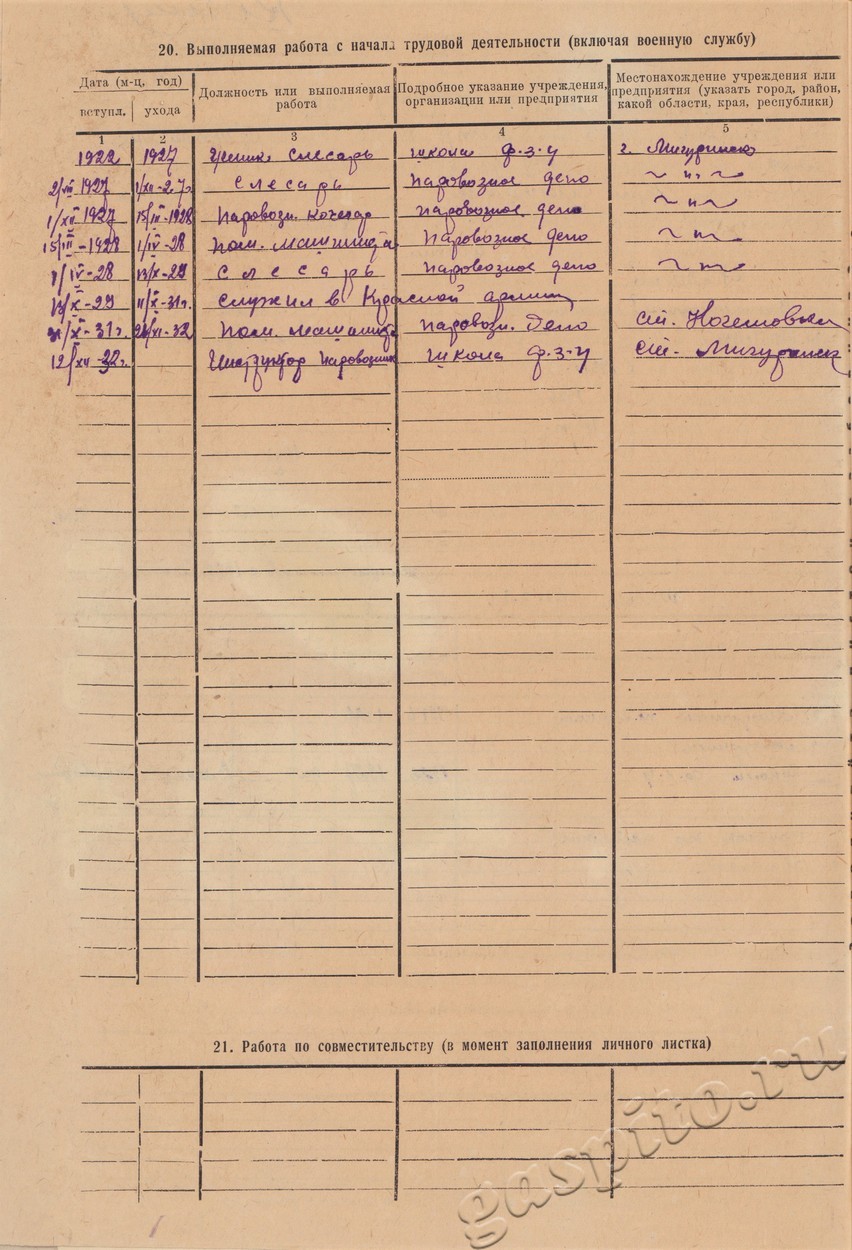 20. Выполняемая работа с начала трудовой деятельности (включая военную службу)
Дата (м-ц, год)
вступл.
ухода
Должность или выполняемая
работа
Подробное указание учреждения,
организации или предприятия
Местонахождение учреждения или
предприятия (указать город, район,
какой области, края, республики)
1 2 3 4 5
1922 1927 Ученик слесарь школа Ф.З.У г. Мичуринск
1927 слесарь паровозное депо ~ и ~
1/XII 1927 15/III-1928 Паровозн. кочегар паровозное депо ~ и ~
15/III-1928 1/IV-28 пом. машиниста паровозное депо ~ и ~
1/IV-28 13/X-29 слесарь паровозное депо ~ и ~
13/X-29 11/X-31г. служил в Красной армии
/X-31г. /XI-32 пом. машиниста паровозн. депо ст. Кочетовка
12/XII-32г. Инструктор паровозник школа Ф.З.У ст. Мичуринск
21. Работа по совместительству (в момент заполнения личного листка)
gaspito.ru